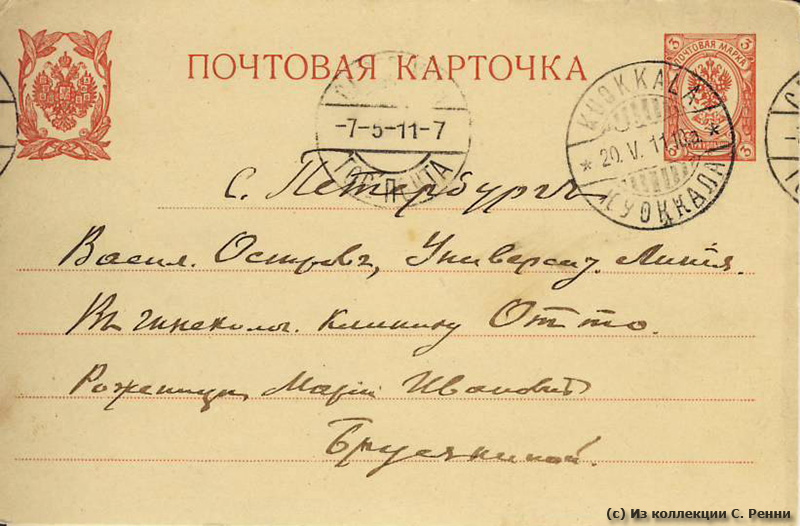 ПОЧТОВАЯ КАРТОЧКА
ПОЧТОВАЯ МАРКА
3 3
3 3
KUOKKALA
20. V. 11. 10 a.
КУОККАЛА
-7-5-11-7
ГОР. ПОЧТА
С. Петербургъ
Васил. Островъ, Университ. Линія.
Въ гинеколог. клинику Отто.
Роженицѣ Маріи Ивановнѣ
Брусяниной.
(c) Из коллекции С. Ренни